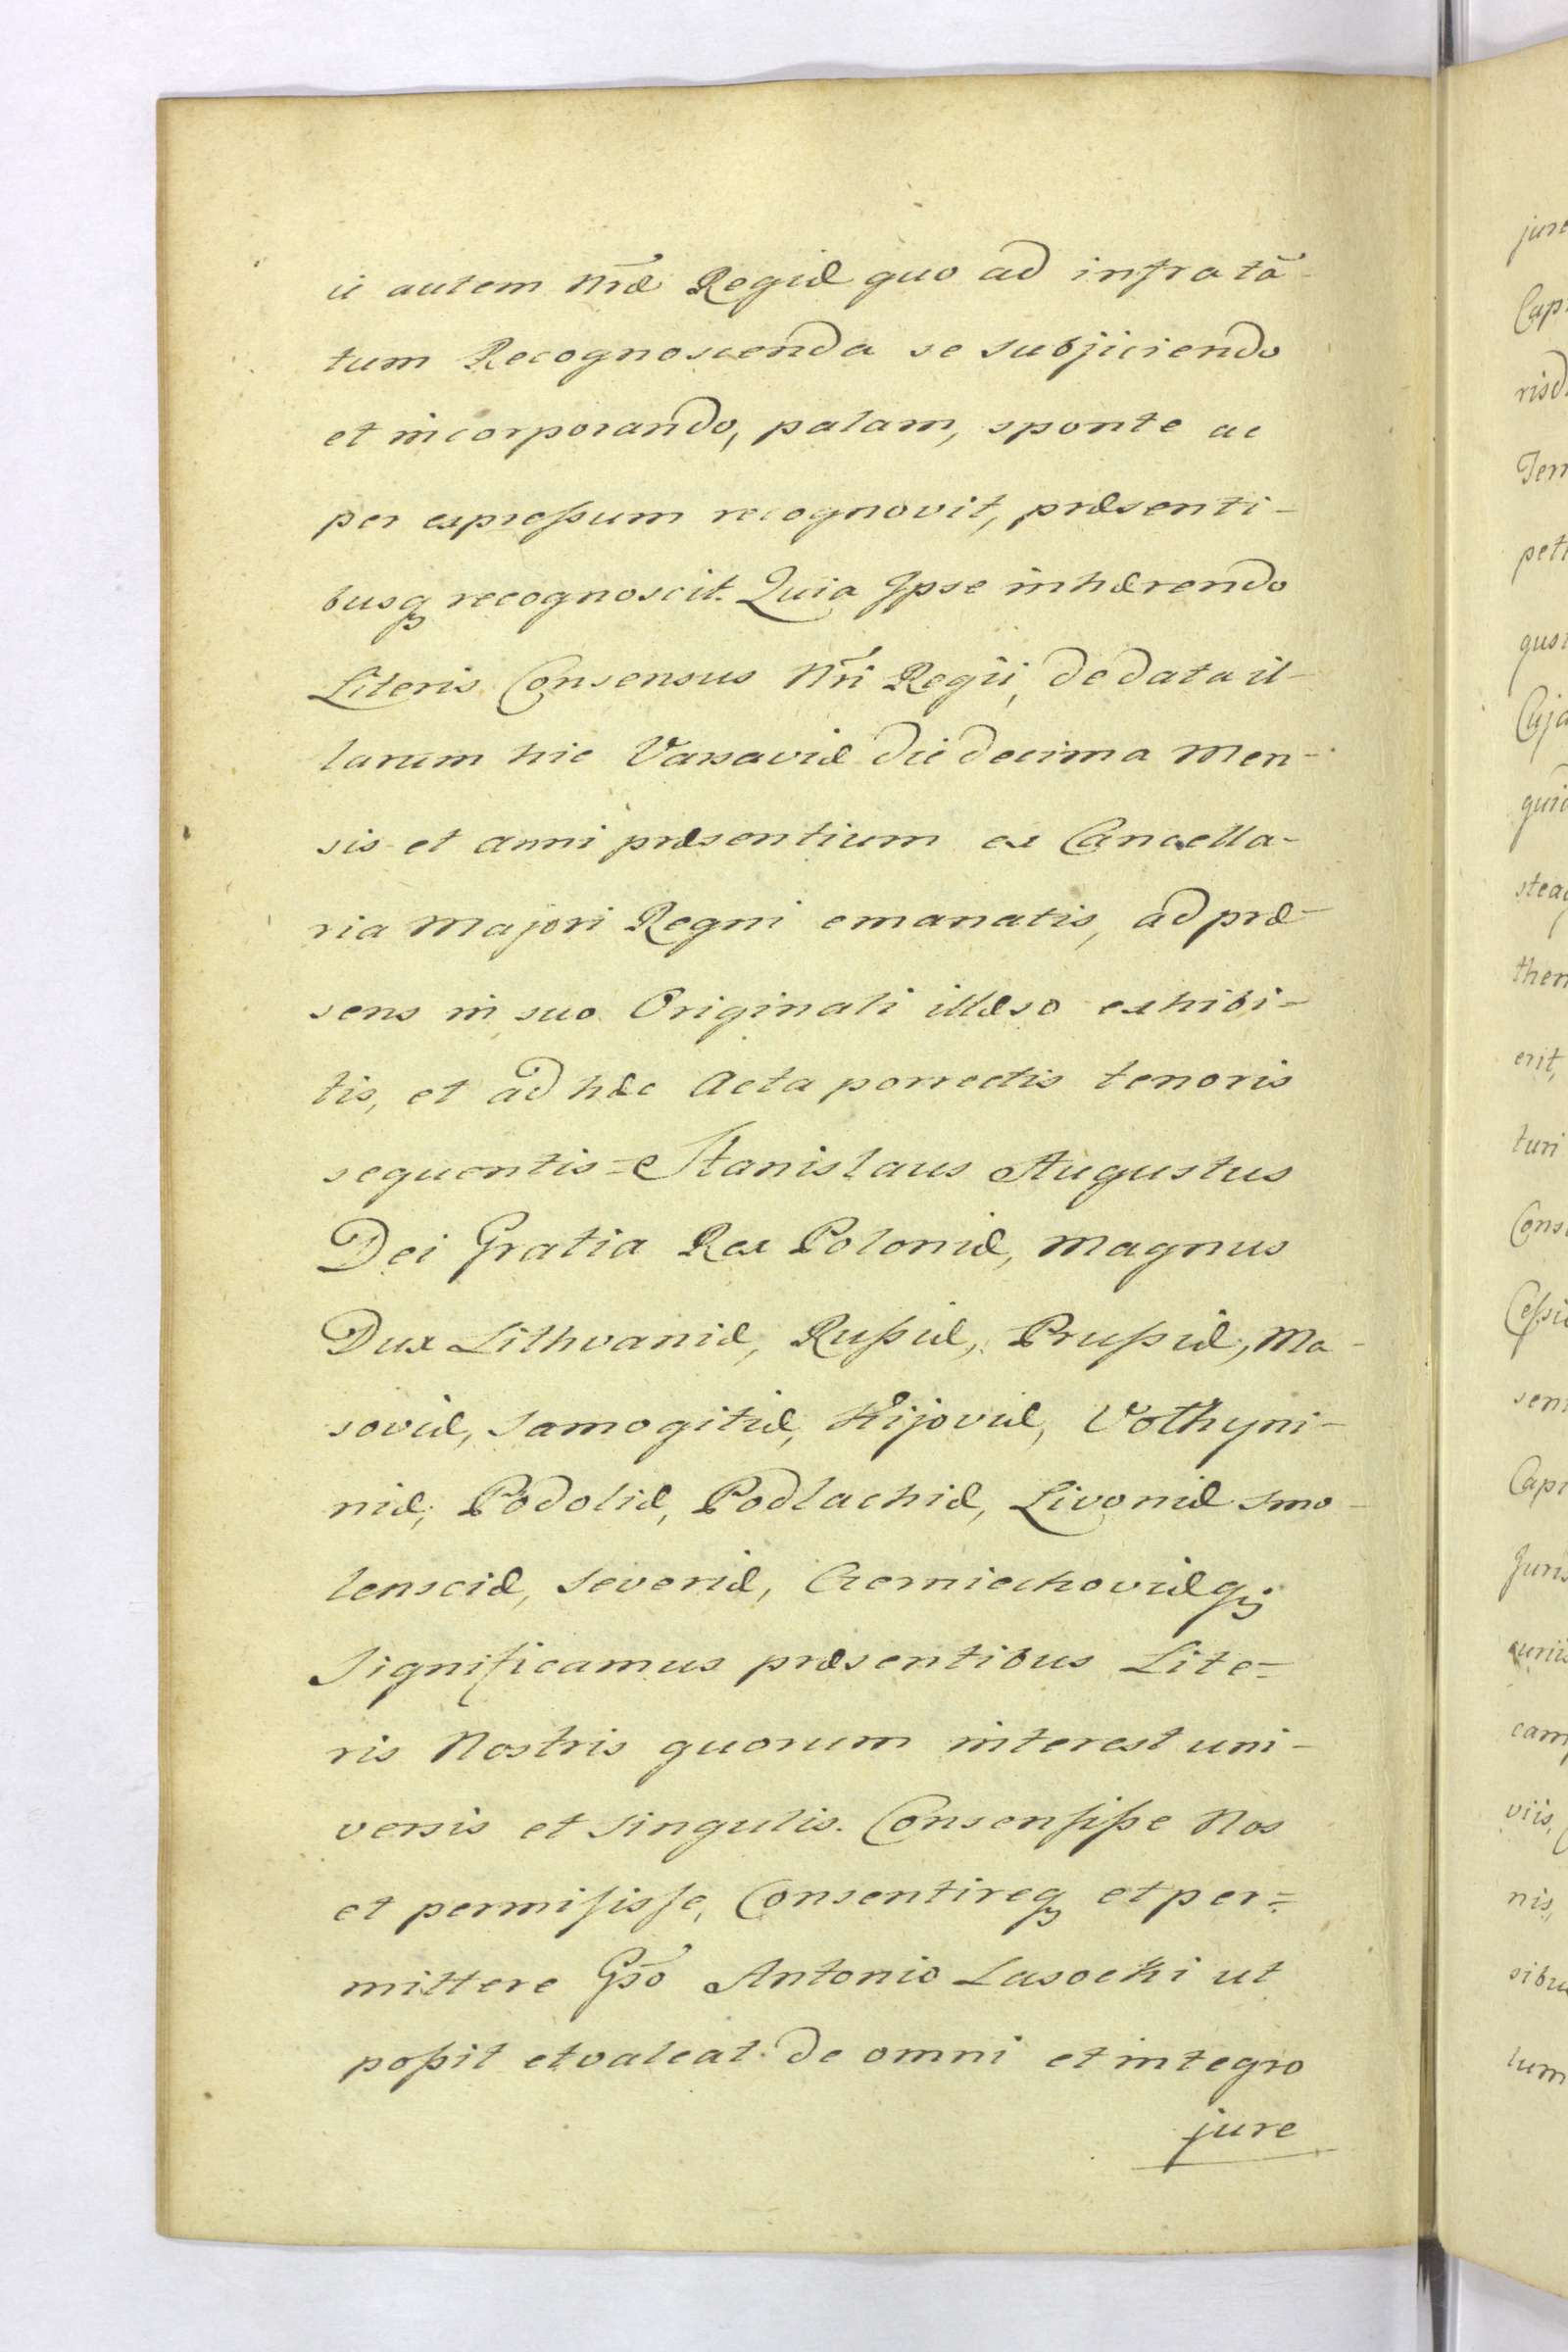 ii autem Nr̃æ Regiæ quo ad infra tã-
tum Recognoscenda se subjiciendo
et incorporando, palam, sponte ac
per expreſsum recognovit, præsenti-
busq recognoscit. Quia Ipse inhærendo
Literis Consensus Nr̃i Regii, de data il-
larum hic Varsaviæ die decima Men-
sis et anni præsentium ex Cancella-
ria Majori Regni emanatis, ad præ-
sens in suo Originali illæso exhibi-
tis, et ad hæc Acta porrectis tenoris
sequentis = Stanislaus Augustus
Dei Gratia Rex Poloniæ, Magnus
Dux Lithvaniæ, Ruſsiæ, Pruſsiæ, Ma-
soviæ, Samogitiæ, Kijoviæ, Volhyni-
niæ, Podoliæ, Podlachiæ, Livoniæ Smo-
lensciæ, Severiæ, Czerniechoviæq
Significamus præsentibus Lite-
ris Nostris quorum interest uni-
versis et singulis. Consenſiſse Nos
et permiſisſe, Consentireq et per=
mittere Gs̃o Antonio Lasocki ut
poſsit et valeat de omni et integro
jure
jure
Cap
risd
Terr
pet
qus
Cuja
quid
steaq
then
erit,
turi
Cons
Ceſsi
sen
Capi
Juris
curiis
cam
viis,
nis,
sibu
lum